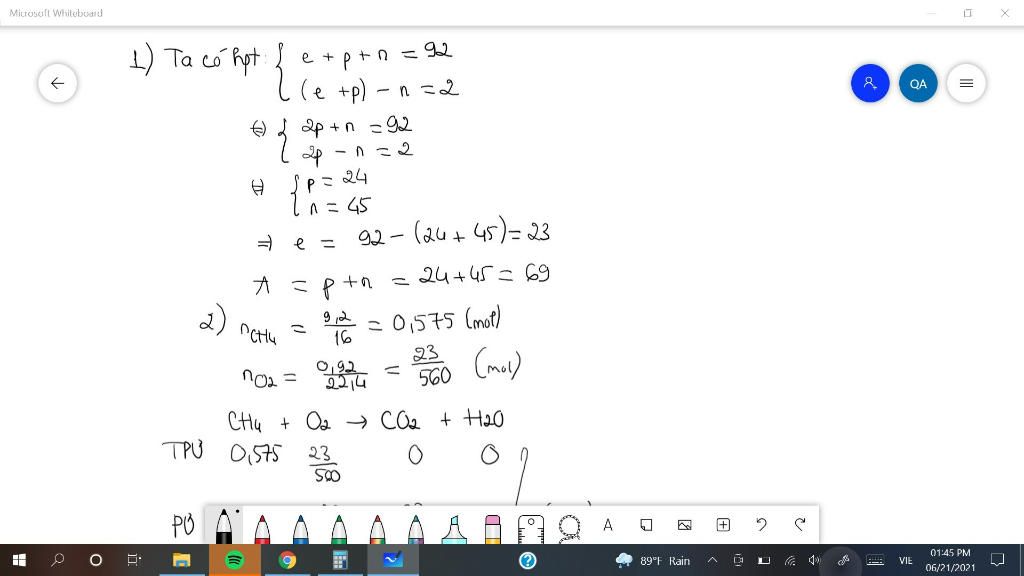 Microsoft Whiteboard
1) Ta có hpt: { e + p + n = 92
(e + p) - n = 2
(=) { 2p + n = 92
2p - n = 2
(=) { p = 24
n = 45
=> e = 92 - (24 + 45) = 23
A = p + n = 24 + 45 = 69
2) nCH4 = 9,2/16 = 0,575 (mol)
nO2 = 0,92/22,4 = 23/560 (mol)
CH4 + O2 → CO2 + H2O
TPƯ 0,575 23/560 0 0
PƯ
QA
A
89°F Rain
VIE
01:45 PM
06/21/2021